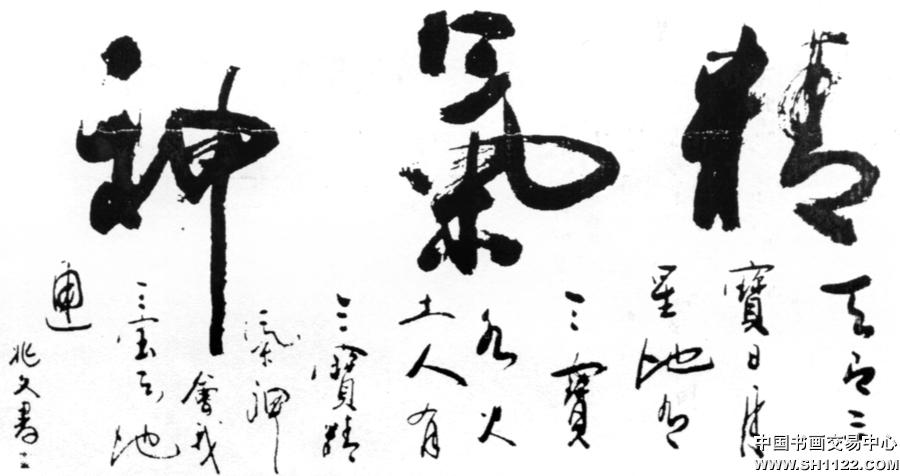 精氣神
天有三
寶日月
星地有
三寶
水火
土人有
三寶精
氣神
會我
三宝天地
通
兆文書
中国书画交易中心
www.SH1122.com